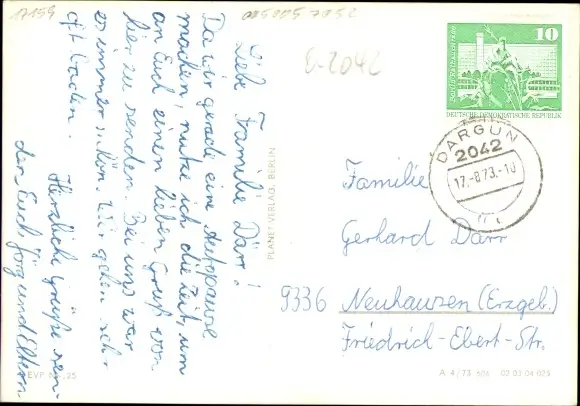 17159
005905 7952
E-2042
Liebe Familie Därr!
Da wir gerade eine Autopause
machen, nutze ich die Zeit, um
an Euch einen lieben Gruß von
hier zu senden. Bei uns war
es immer schön. Wir gehen sehr
oft baden.
Herzliche Grüße sen-
den Euch Jörg und Eltern
EVP M -,25
PLANET-VERLAG, BERLIN
10
DEUTSCHE DEMOKRATISCHE REPUBLIK
DARGUN
2042
17.-8.73.-10
Familie
Gerhard Därr
9336 Neuhausen (Erzgeb.)
Friedrich-Ebert-Str.
A 4/73 02 03 04 023